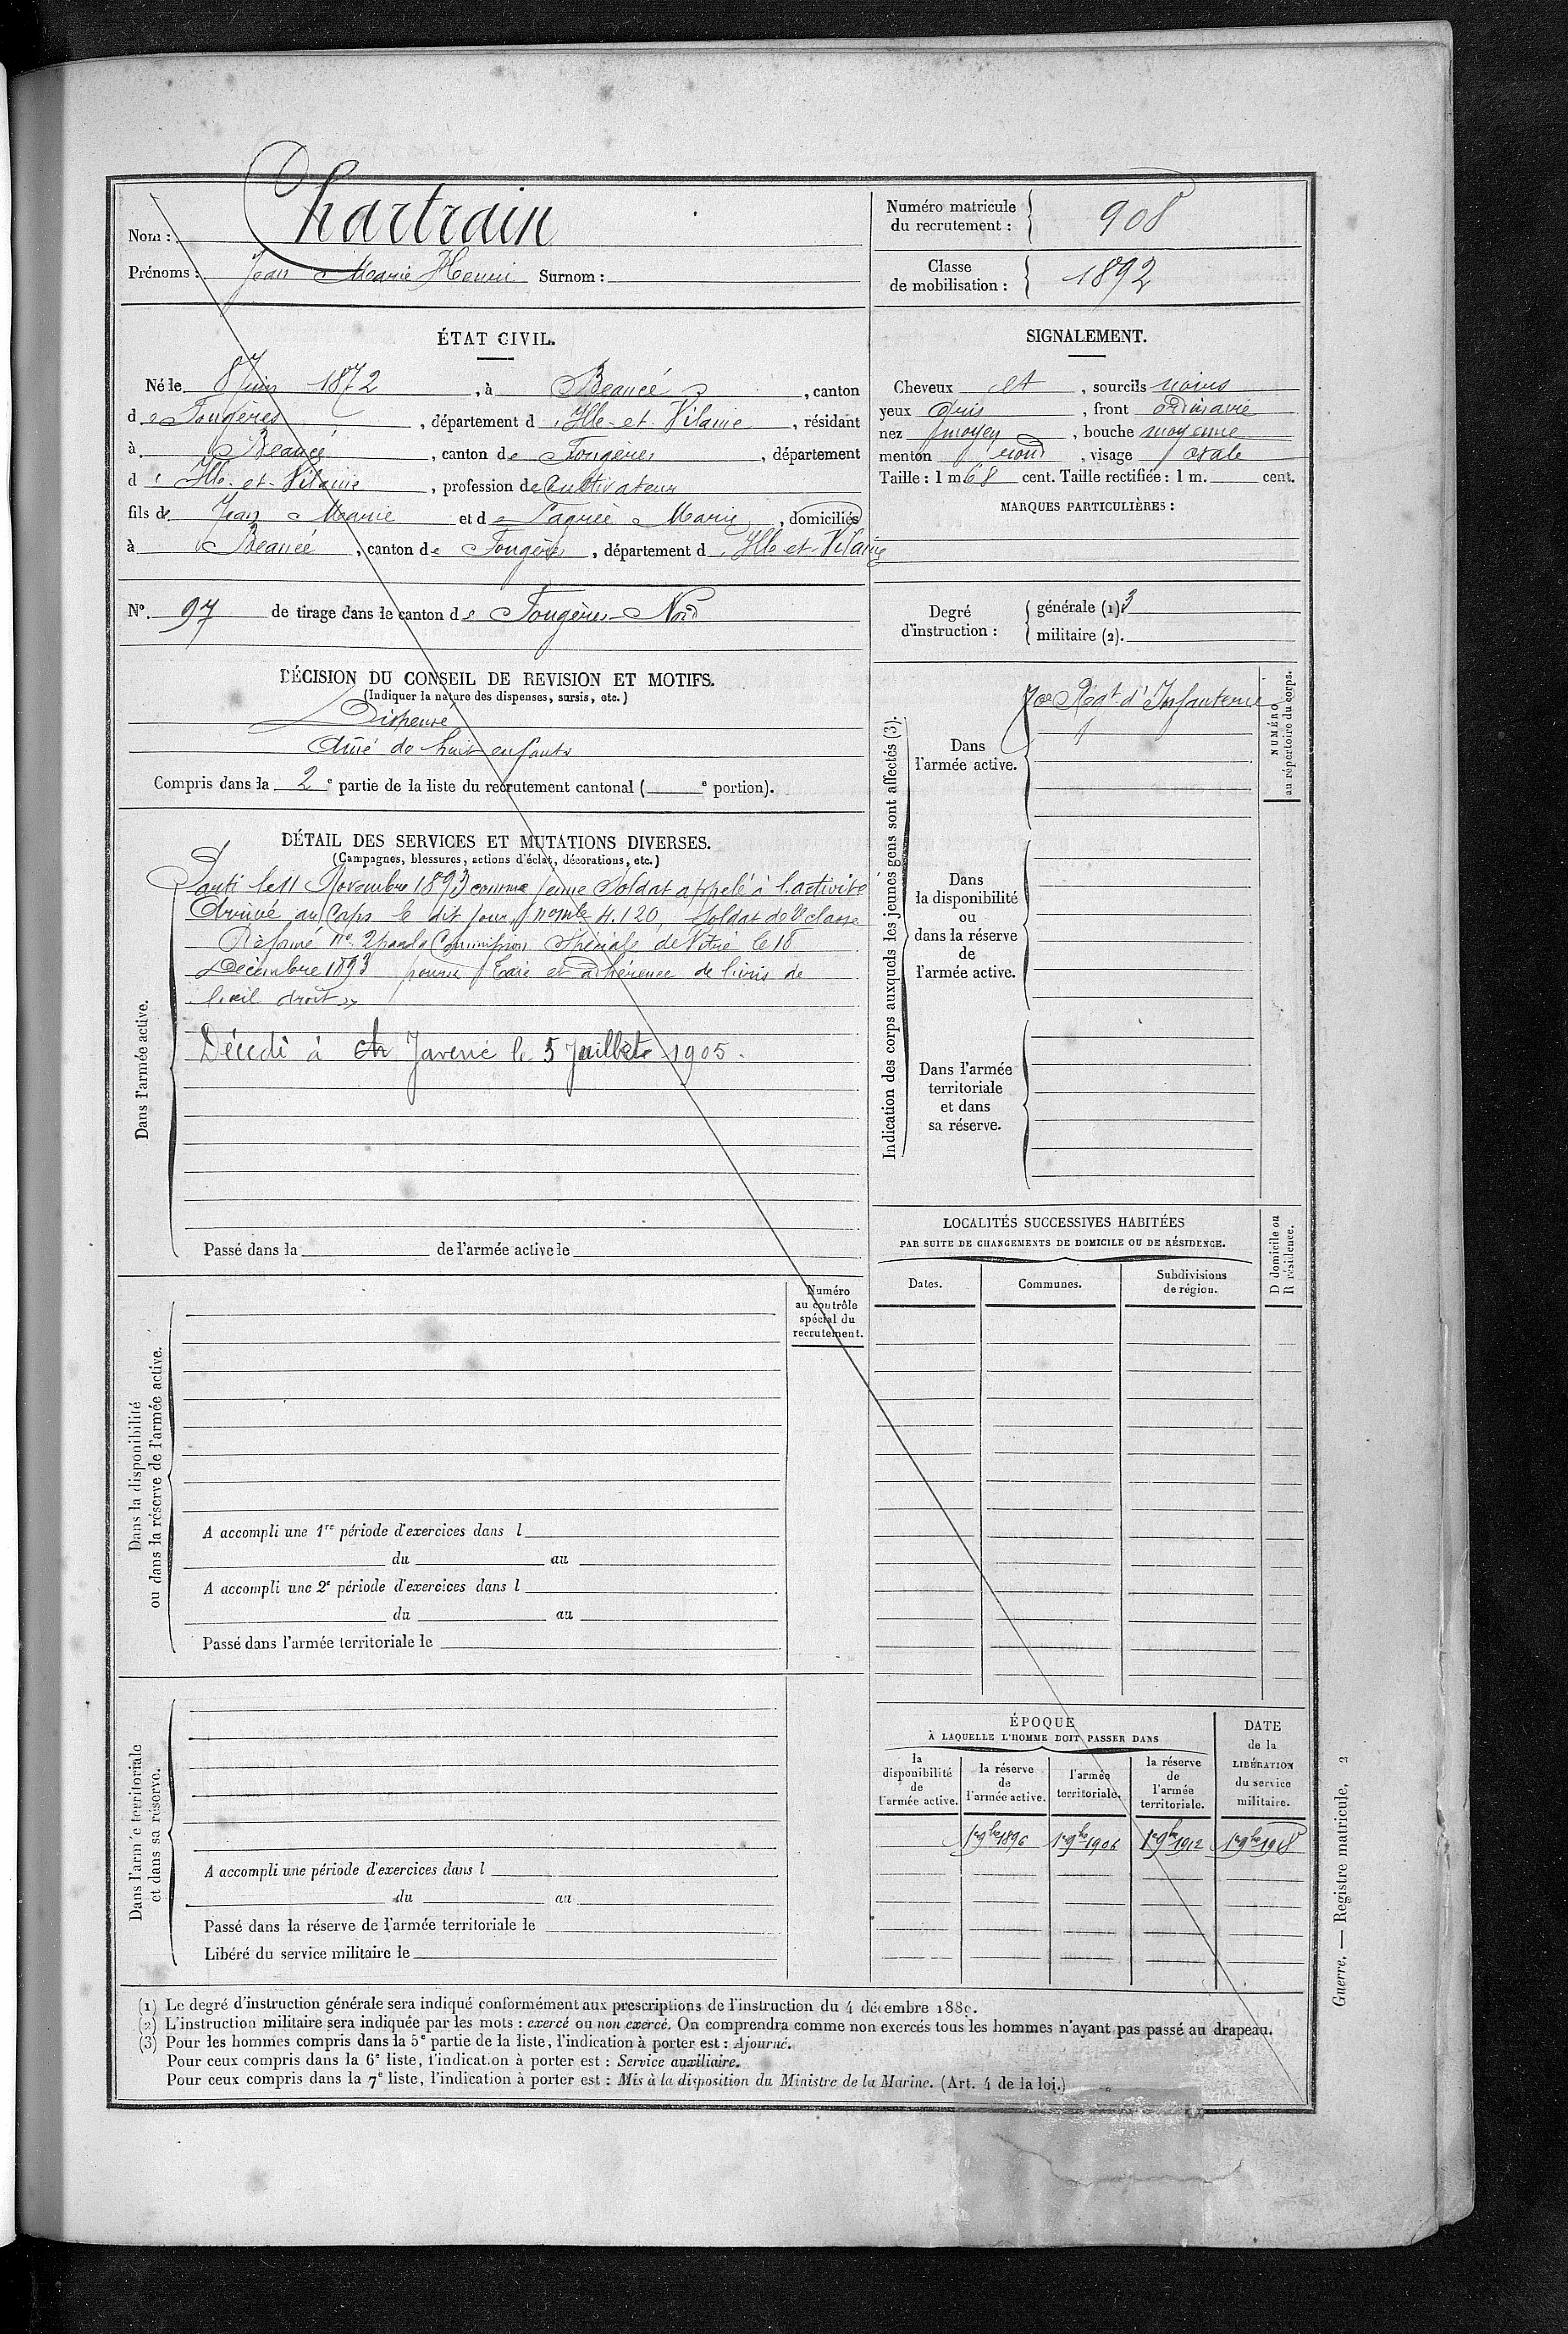 Nom : Chartrain
Prénoms : Jean Marie Henri Surnom :
Numéro matricule du recrutement : 908
Classe de mobilisation : 1892
ÉTAT CIVIL.
Né le 8 Juin 1872, à Beaucé, canton
de Fougères, département d'Ille-et-Vilaine, résidant
à Beaucé, canton de Fougères, département
d'Ille-et-Vilaine, profession de Cultivateur
fils de Jean Marie et de Lagrée Marie, domiciliés
à Beaucé, canton de Fougères, département d'Ille-et-Vilaine
N° 97 de tirage dans le canton de Fougères-Nord
SIGNALEMENT.
Cheveux et, sourcils noirs
yeux Gris, front ordinaire
nez moyen, bouche moyenne
menton rond, visage ovale
Taille : 1 m 68 cent. Taille rectifiée : 1 m. cent.
MARQUES PARTICULIÈRES :
Degré d'instruction : générale (1) 3
militaire (2).
DÉCISION DU CONSEIL DE REVISION ET MOTIFS.
(Indiquer la nature des dispenses, sursis, etc.)
Dispensé
Aîné de huit enfants
Compris dans la 2e partie de la liste du recrutement cantonal ( e portion).
DÉTAIL DES SERVICES ET MUTATIONS DIVERSES.
(Campagnes, blessures, actions d'éclat, décorations, etc.)
Dans l'armée active.
Parti le 11 Novembre 1893 comme jeune Soldat appelé à l'activité
Arrivé au Corps le dit jour, nomle 4.120, Soldat de 2e classe
Réformé n° 2 par la Commission Spéciale de Vitré le 18
Décembre 1893 pour Taie et adhérence de l'iris de
l'œil droit »
Décédé à Javené le 5 Juillet 1905.
Passé dans la de l'armée active le
Indication des corps auxquels les jeunes gens sont affectés (3).
NUMÉRO au répertoire du corps.
Dans l'armée active.
70e Régt d'Infanterie
Dans la disponibilité ou dans la réserve de l'armée active.
Dans l'armée territoriale et dans sa réserve.
LOCALITÉS SUCCESSIVES HABITÉES
PAR SUITE DE CHANGEMENTS DE DOMICILE OU DE RÉSIDENCE.
Dates. Communes. Subdivisions de région.
D domicile ou R résidence.
Numéro au contrôle spécial du recrutement.
Dans la disponibilité ou dans la réserve de l'armée active.
A accompli une 1re période d'exercices dans l
du au
A accompli une 2e période d'exercices dans l
du au
Passé dans l'armée territoriale le
Dans l'armée territoriale et dans sa réserve.
A accompli une période d'exercices dans l
du au
Passé dans la réserve de l'armée territoriale le
Libéré du service militaire le
ÉPOQUE
À LAQUELLE L'HOMME DOIT PASSER DANS
la disponibilité de l'armée active.
la réserve de l'armée active.
l'armée territoriale.
la réserve de l'armée territoriale.
DATE de la LIBÉRATION du service militaire.
1er 9bre 1896 1er 9bre 1906 1er 9bre 1912 1er 9bre 1918
(1) Le degré d'instruction générale sera indiqué conformément aux prescriptions de l'instruction du 4 décembre 1889.
(2) L'instruction militaire sera indiquée par les mots : exercé ou non exercé. On comprendra comme non exercés tous les hommes n'ayant pas passé au drapeau.
(3) Pour les hommes compris dans la 5e partie de la liste, l'indication à porter est : Ajourné.
Pour ceux compris dans la 6e liste, l'indication à porter est : Service auxiliaire.
Pour ceux compris dans la 7e liste, l'indication à porter est : Mis à la disposition du Ministre de la Marine. (Art. 4 de la loi.)
Guerre. — Registre matricule. 2